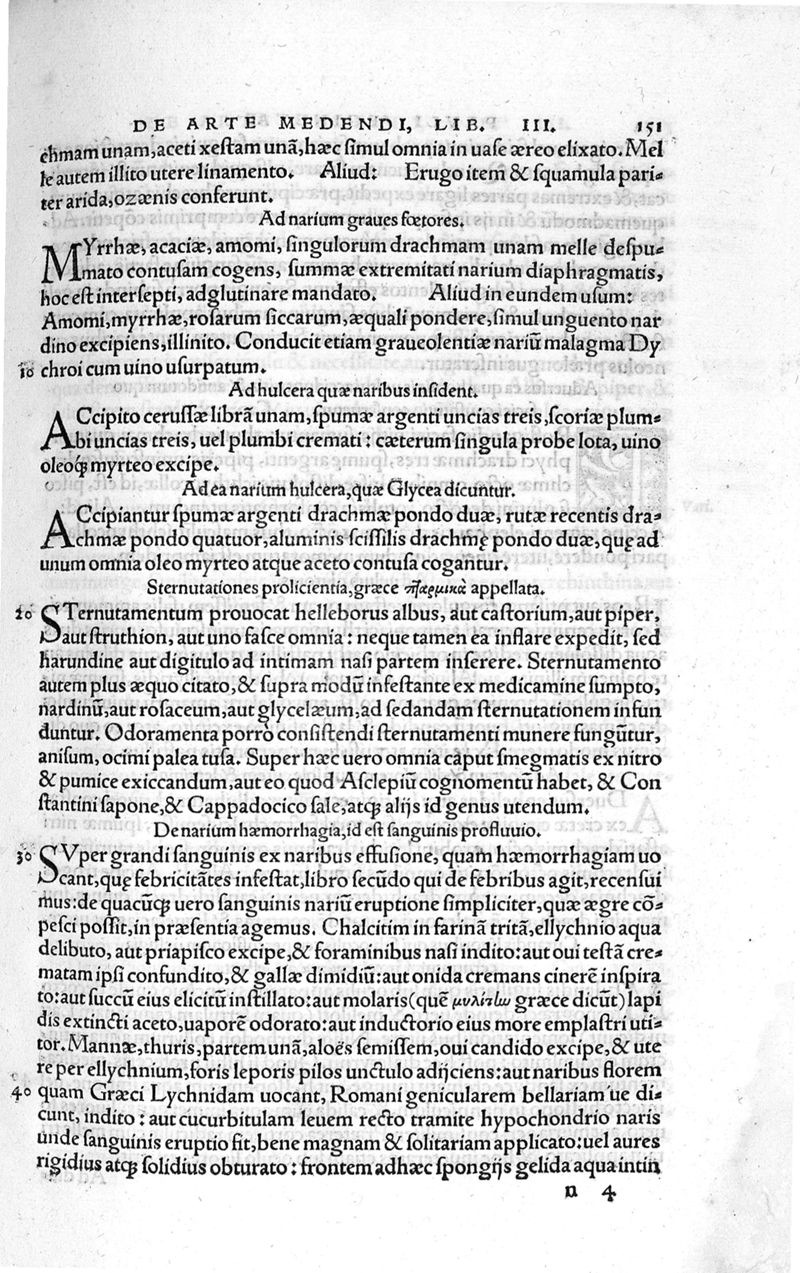 DE ARTE MEDENDI, LIB. III. 151
chmam unam, aceti xeſtam unã, hæc ſimul omnia in uaſe æreo elixato. Mel
le autem illito utere linamento. Aliud: Erugo item & ſquamula pari-
ter arida, ozænis conferunt.
Ad narium graues fœtores.
MYrrhæ, acaciæ, amomi, ſingulorum drachmam unam melle deſpu-
mato contuſam cogens, ſummæ extremitati narium diaphragmatis,
hoc eſt interſepti, adglutinare mandato. Aliud in eundem uſum:
Amomi, myrrhæ, roſarum ſiccarum, æquali pondere, ſimul unguento nar
dino excipiens, illinito. Conducit etiam graueolentiæ nariũ malagma Dy
10 chroi cum uino uſurpatum.
Ad hulcera quæ naribus inſident.
ACcipito ceruſſæ librã unam, ſpumæ argenti uncias treis, ſcoriæ plum-
bi uncias treis, uel plumbi cremati: cæterum ſingula probe lota, uino
oleoq́; myrteo excipe.
Ad ea narium hulcera, quæ Glycea dicuntur.
ACcipiantur ſpumæ argenti drachmæ pondo duæ, rutæ recentis dra-
chmæ pondo quatuor, aluminis ſciſſilis drachmę pondo duæ, quę ad
unum omnia oleo myrteo atque aceto contuſa cogantur.
Sternutationes prolicientia, græce πταρμικὰ appellata.
20 STernutamentum prouocat helleborus albus, aut caſtorium, aut piper,
aut ſtruthion, aut uno faſce omnia: neque tamen ea inflare expedit, ſed
harundine aut digitulo ad intimam naſi partem inſerere. Sternutamento
autem plus æquo citato, & ſupra modũ infeſtante ex medicamine ſumpto,
nardinũ, aut roſaceum, aut glycelæum, ad ſedandam ſternutationem infun
duntur. Odoramenta porrò conſiſtendi ſternutamenti munere fungũtur,
aniſum, ocimi palea tuſa. Super hæc uero omnia caput ſmegmatis ex nitro
& pumice exiccandum, aut eo quod Aſclepiũ cognomentũ habet, & Con
ſtantini ſapone, & Cappadocico ſale, atq; alijs id genus utendum.
De narium hæmorrhagia, id eſt ſanguinis profluuio.
30 SVper grandi ſanguinis ex naribus effuſione, quam hæmorrhagiam uo
cant, quę febricitãtes infeſtat, libro ſecũdo qui de febribus agit, recenſui
mus: de quacũq; uero ſanguinis nariũ eruptione ſimpliciter, quæ ægre cõ-
peſci poſſit, in præſentia agemus. Chalcitim in farinã tritã, ellychnio aqua
delibuto, aut priapiſco excipe, & foraminibus naſi indito: aut oui teſtã cre-
matam ipſi confundito, & gallæ dimidiũ: aut onida cremans cinerẽ inſpira
to: aut ſuccũ eius elicitũ inſtillato: aut molaris (quẽ μυλίτω græce dicũt) lapi
dis extincti aceto, uaporẽ odorato: aut inductorio eius more emplaſtri uti-
tor. Mannæ, thuris, partem unã, aloës ſemiſſem, oui candido excipe, & ute
re per ellychnium, foris leporis pilos unctulo adijciens: aut naribus florem
40 quam Græci Lychnidam uocant, Romani genicularem bellariam´ue di-
cunt, indito: aut cucurbitulam leuem recto tramite hypochondrio naris
unde ſanguinis eruptio fit, bene magnam & ſolitariam applicato: uel aures
rigidius atq; ſolidius obturato: frontem adhæc ſpongijs gelida aqua intin
n 4